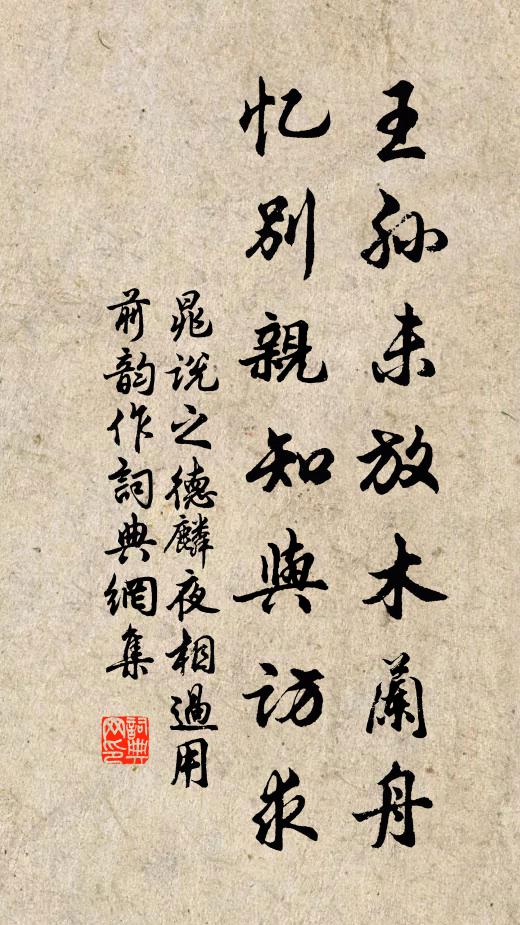 王孙未放木蘭舟
忆别親知與訪求
晁说之德麟夜相過用
前韵作詞典網集
詞典网印